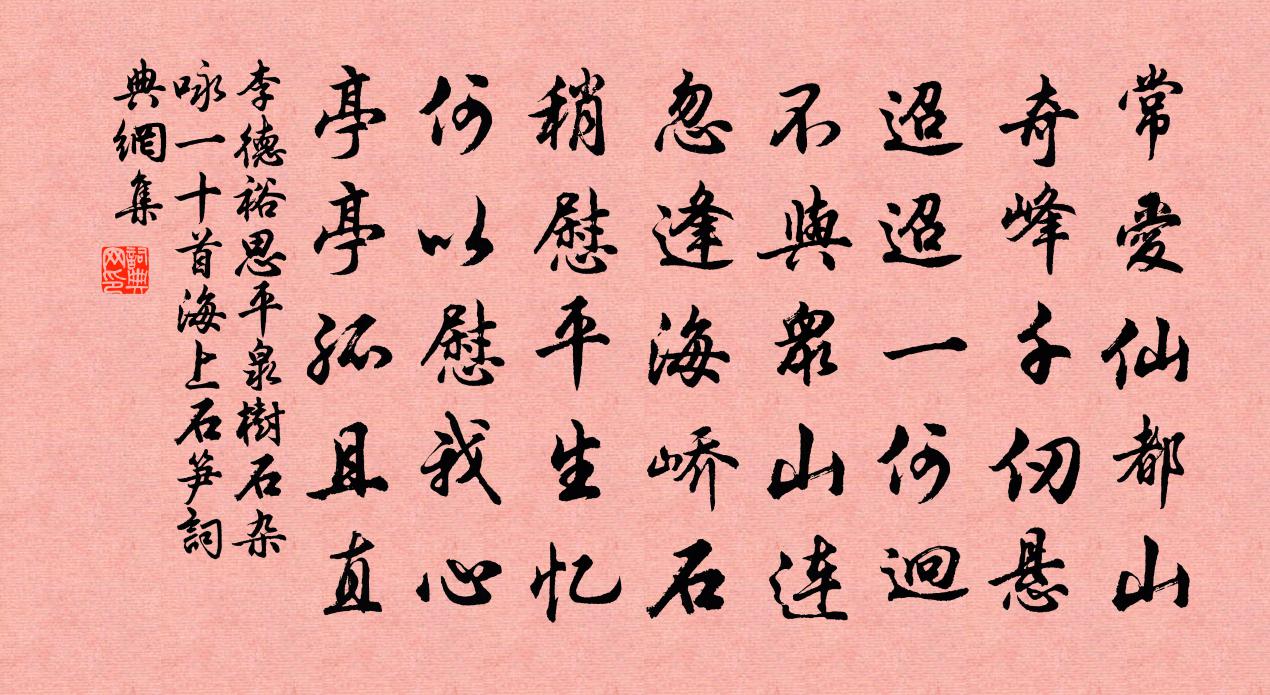 常愛仙都山
奇峰千仞悬
迢迢一何迥
不與衆山連
忽逢海峤石
稍慰平生忆
何以慰我心
亭亭孤且直
李德裕思平泉樹石杂
咏一十首海上石笋詞
典網集
詞典网印